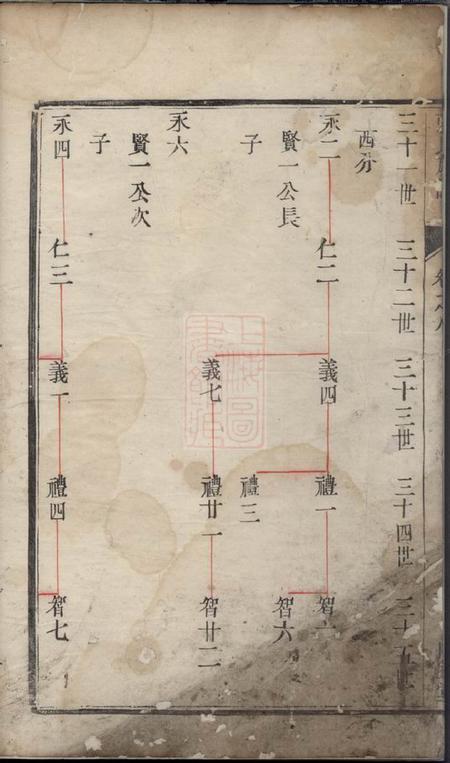 三十一世 三十二世 三十三世 三十四世 三十五世
西分
永二 仁二 義四 禮一 智
賢一公長 智六
子 禮三
義七 禮廿一 智廿二
永六
賢一公次
子
永四 仁三 義一 禮四 智七
上海圖
書館藏